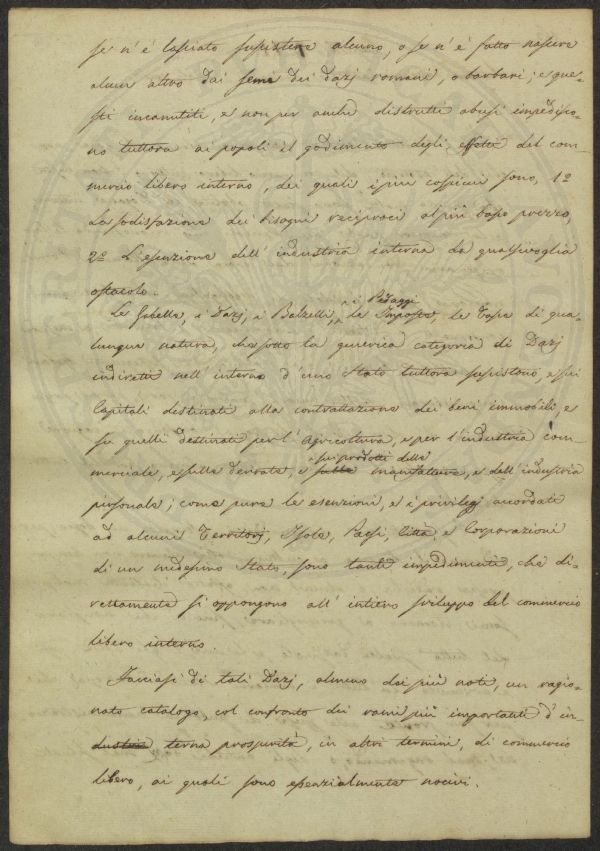 se n'è lasciato sussistere alcuno, o se n'è fatto nascere
alcun altro dai semi dei dazj romani, o barbari; e que-
sti incanutiti, e non per anche distrutti abusi impedisco-
no tuttora ai popoli il godimento degli effetti del com-
mercio libero interno, dei quali i più cospicui sono, 1º
La sodisfazione dei bisogni reciproci al più basso prezzo,
2º L'esenzione dell'industria interna da qualsivoglia
ostacolo.
Le Gabelle, i Dazj, i Balzelli, i Pedaggi le Imposte, le Tasse di qua-
lunque natura, che sotto la generica categoria di Dazj
indiretti nell'interno d'uno Stato tuttora sussistono, e sui
Capitali destinati alla contrattazione dei beni immobili, e
su quelli destinati per l'Agricoltura, e per l'industria com-
merciale, e sulle derrate, e sui prodotti delle manifatture, e dell'industria
personale; come pure le esenzioni, e i privilegj accordati
ad alcuni Territorj, Isole, Paesi, Città, e Corporazioni
di un medesimo Stato, sono tanti impedimenti, che di-
rettamente si oppongono all'intiero sviluppo del commercio
libero interno.
Facciasi di tali Dazj, almeno dei più noti, un ragio-
nato catalogo, col confronto dei rami più importanti d'in-
dustria terna prosperità, in altri termini, di commercio
libero, ai quali sono essenzialmente nocivi.